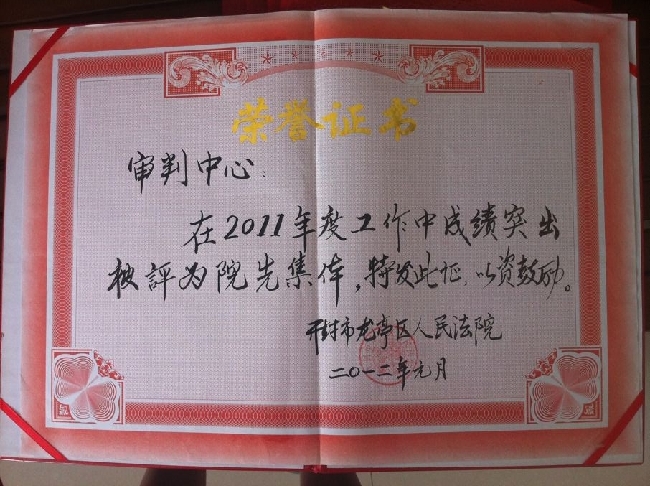 荣誉证书
审判中心:
在2011年度工作中成绩突出
被評为院先集体,特发此证,以资鼓励。
开封市龙亭区人民法院
二〇一二年元月